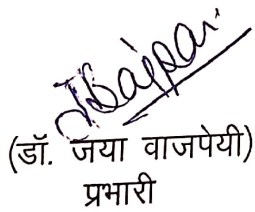 JBajpai
(डॉ. जया वाजपेयी)
प्रभारी